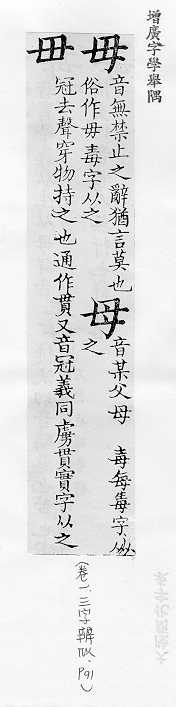 增廣字學舉隅
毋
音無禁止之辭猶言莫也
俗作毋毒字从之
母
音某父母 毒每毒字从
之
毌
冠去聲穿物持之也通作貫又音冠義同虜貫實字从之
(卷一、三字辨似、P91)